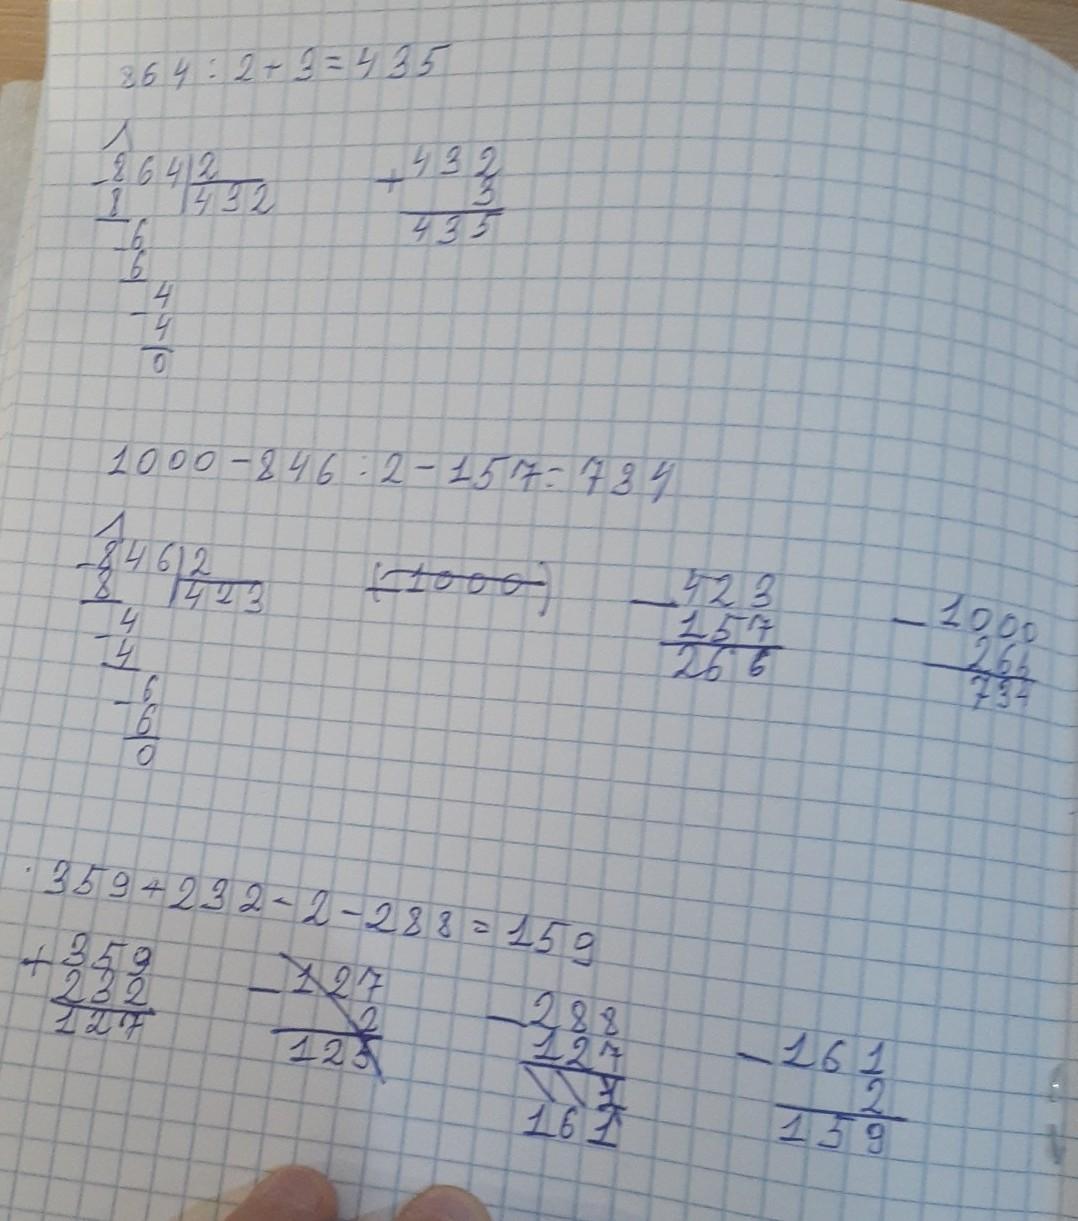 864:2+3=435
864 2
8 432
6
6
4
4
0
+432
3
435
1000-846:2-157=734
846 2
8 423
4
4
6
6
0
(-1000)
-423
157
266
-1000
266
734
359+232-2-288=159
+359
232
127
-127
2
125
-288
127
161
-161
2
159